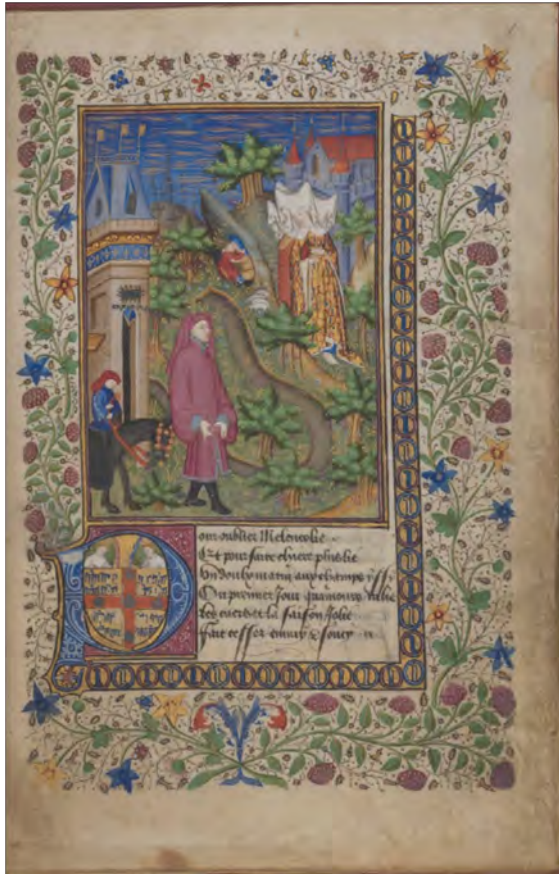 Pour oublier Melencolie
Et pour faire chiere plus lie
Un doulx matin aux champs
Ou premier jour quamours ralie
Les cuers et la saison Jolie
Fait cesser ennuy & soucy